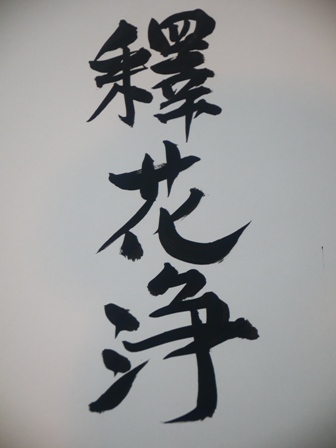 釋花浄